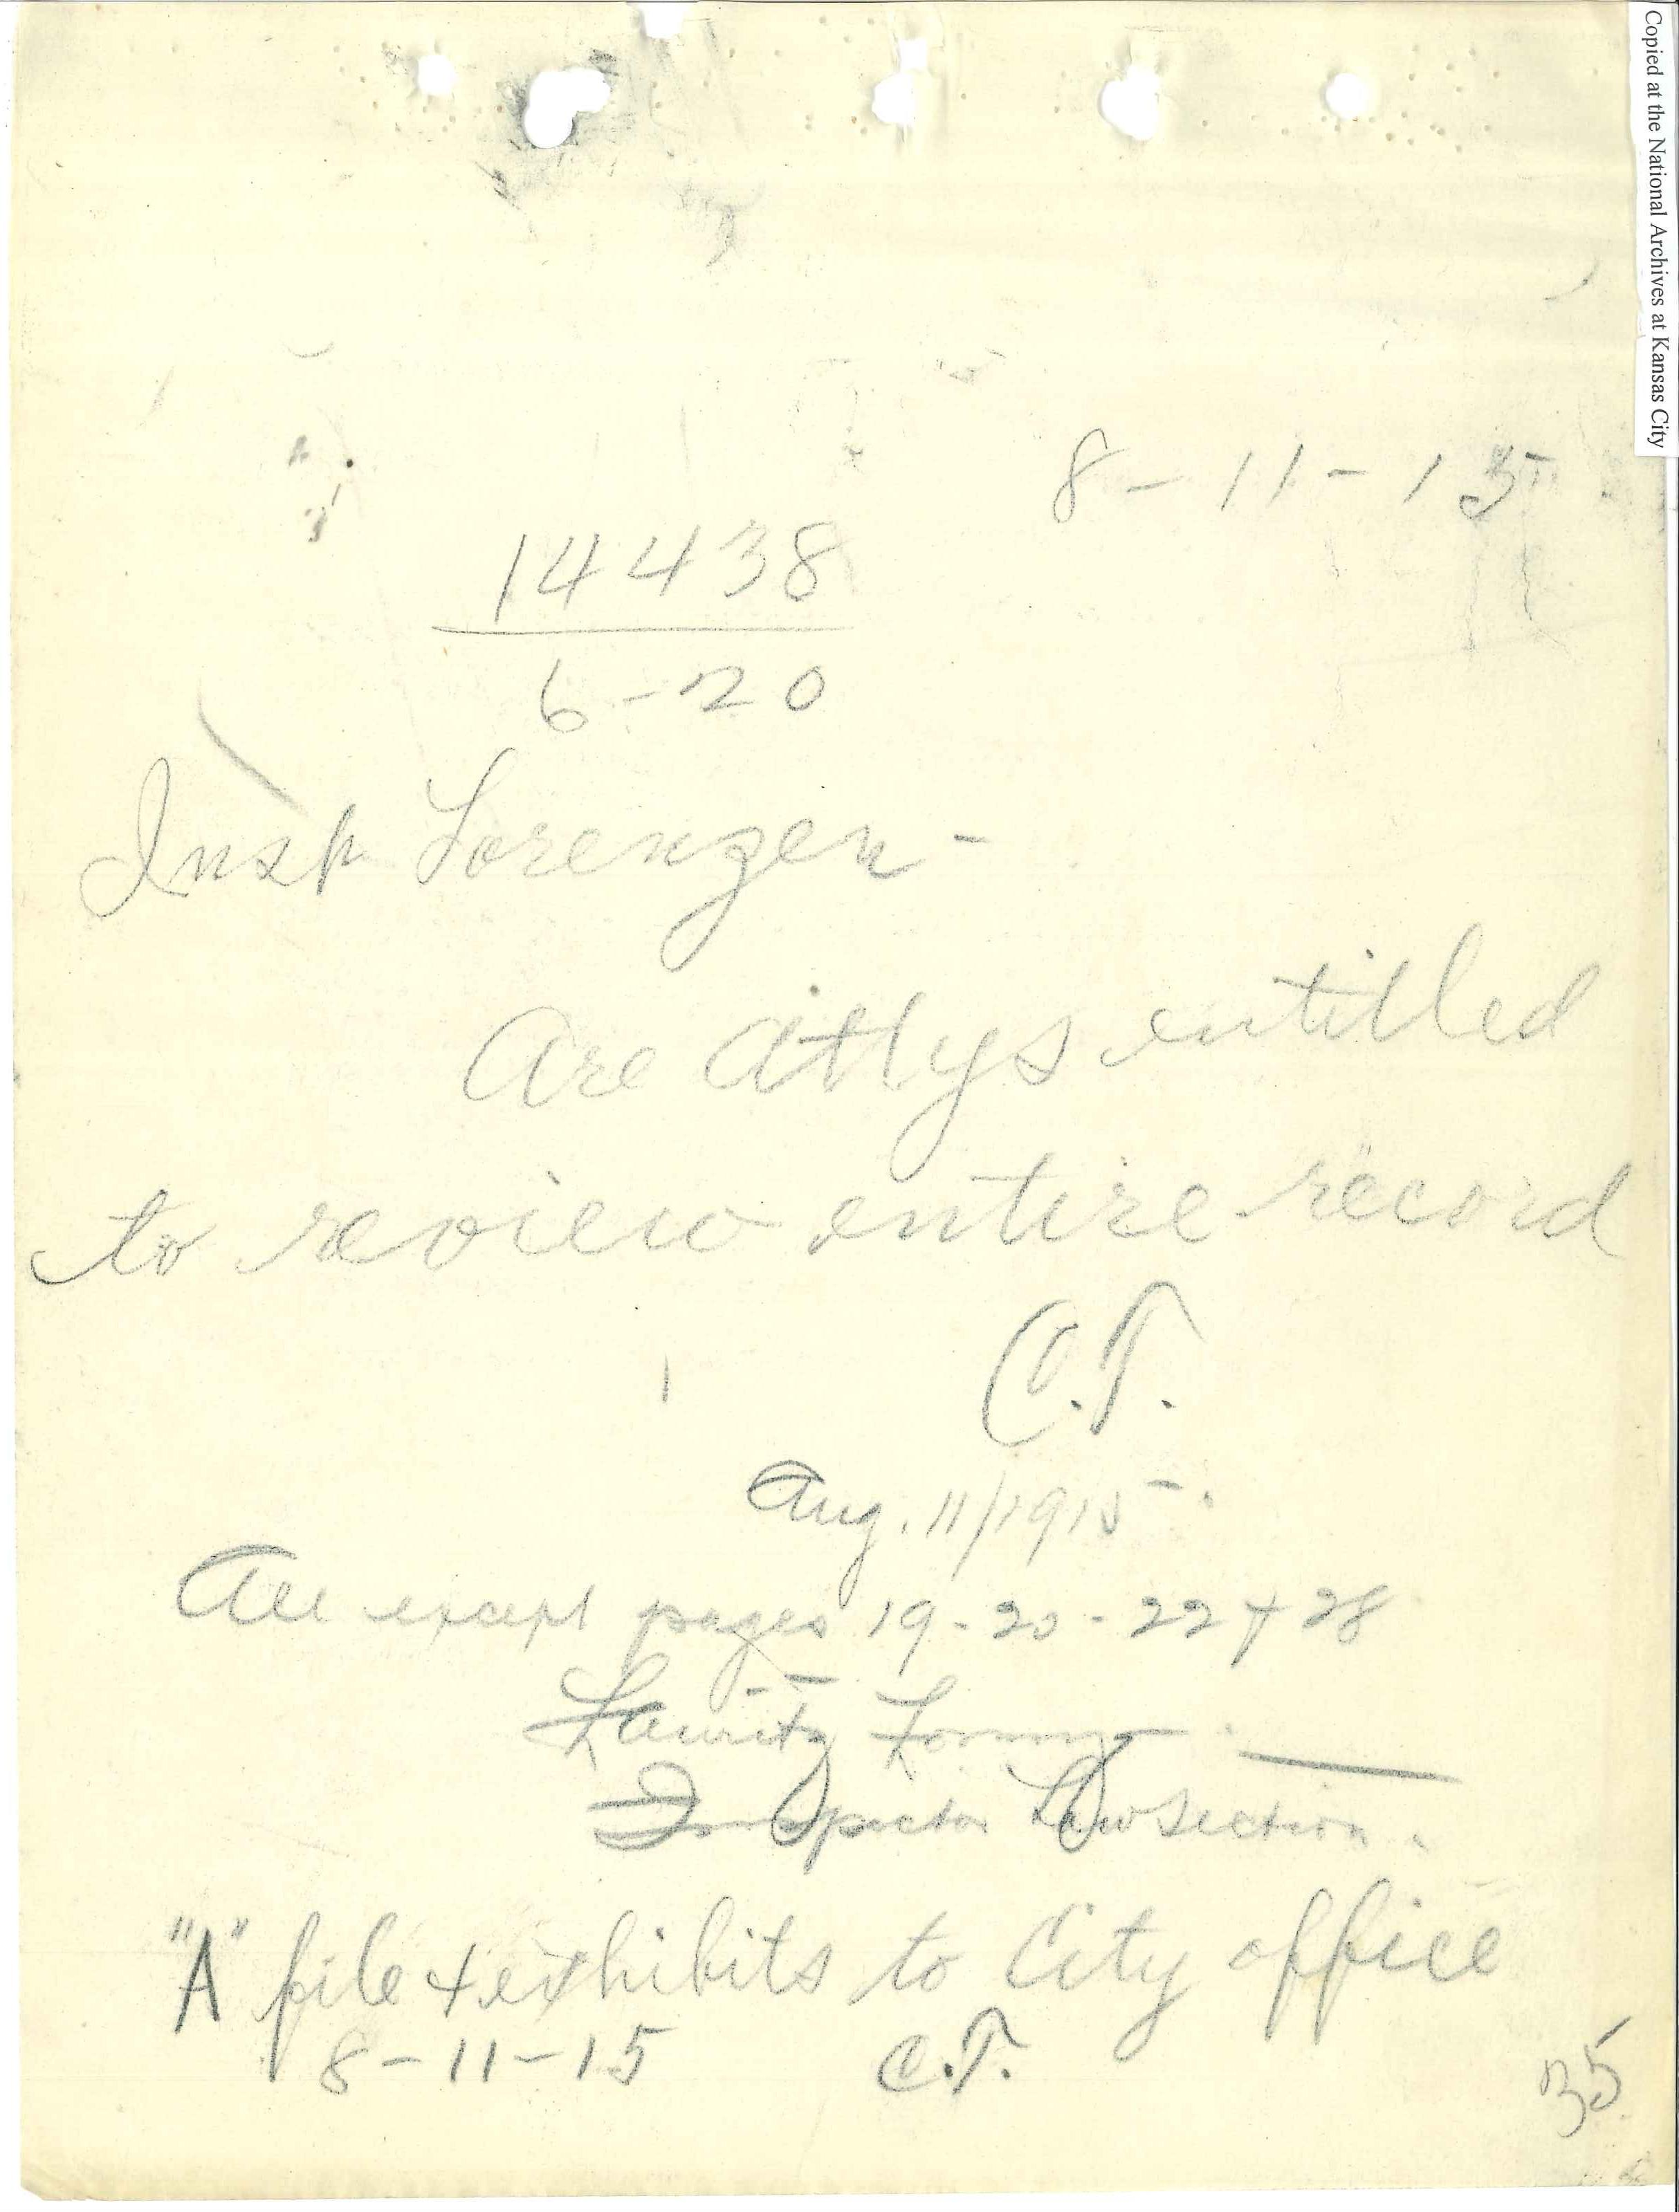 Copied at the National Archives at Kansas City
8-11-15
14438
6-20
Insp Lorenzen-
Are Attys entitled
to review entire record
C.T.
Aug. 11/1915-.
All except pages 19-20-22 + 28
Lauritz Lorenzen
Inspector Law Section.
"A" file & exhibits to City office
8-11-15 C.T.
35